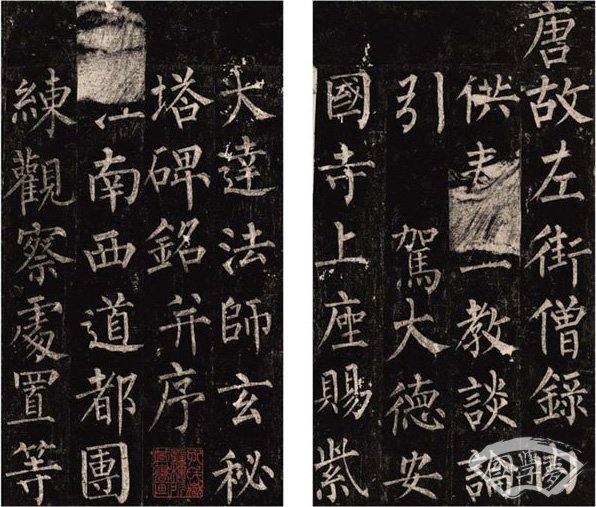 唐故左街僧錄内
供教談論
引駕大德安
國寺上座賜紫
大達法師玄秘
塔碑銘并序
南西道都團
練觀察處置等
國學夢